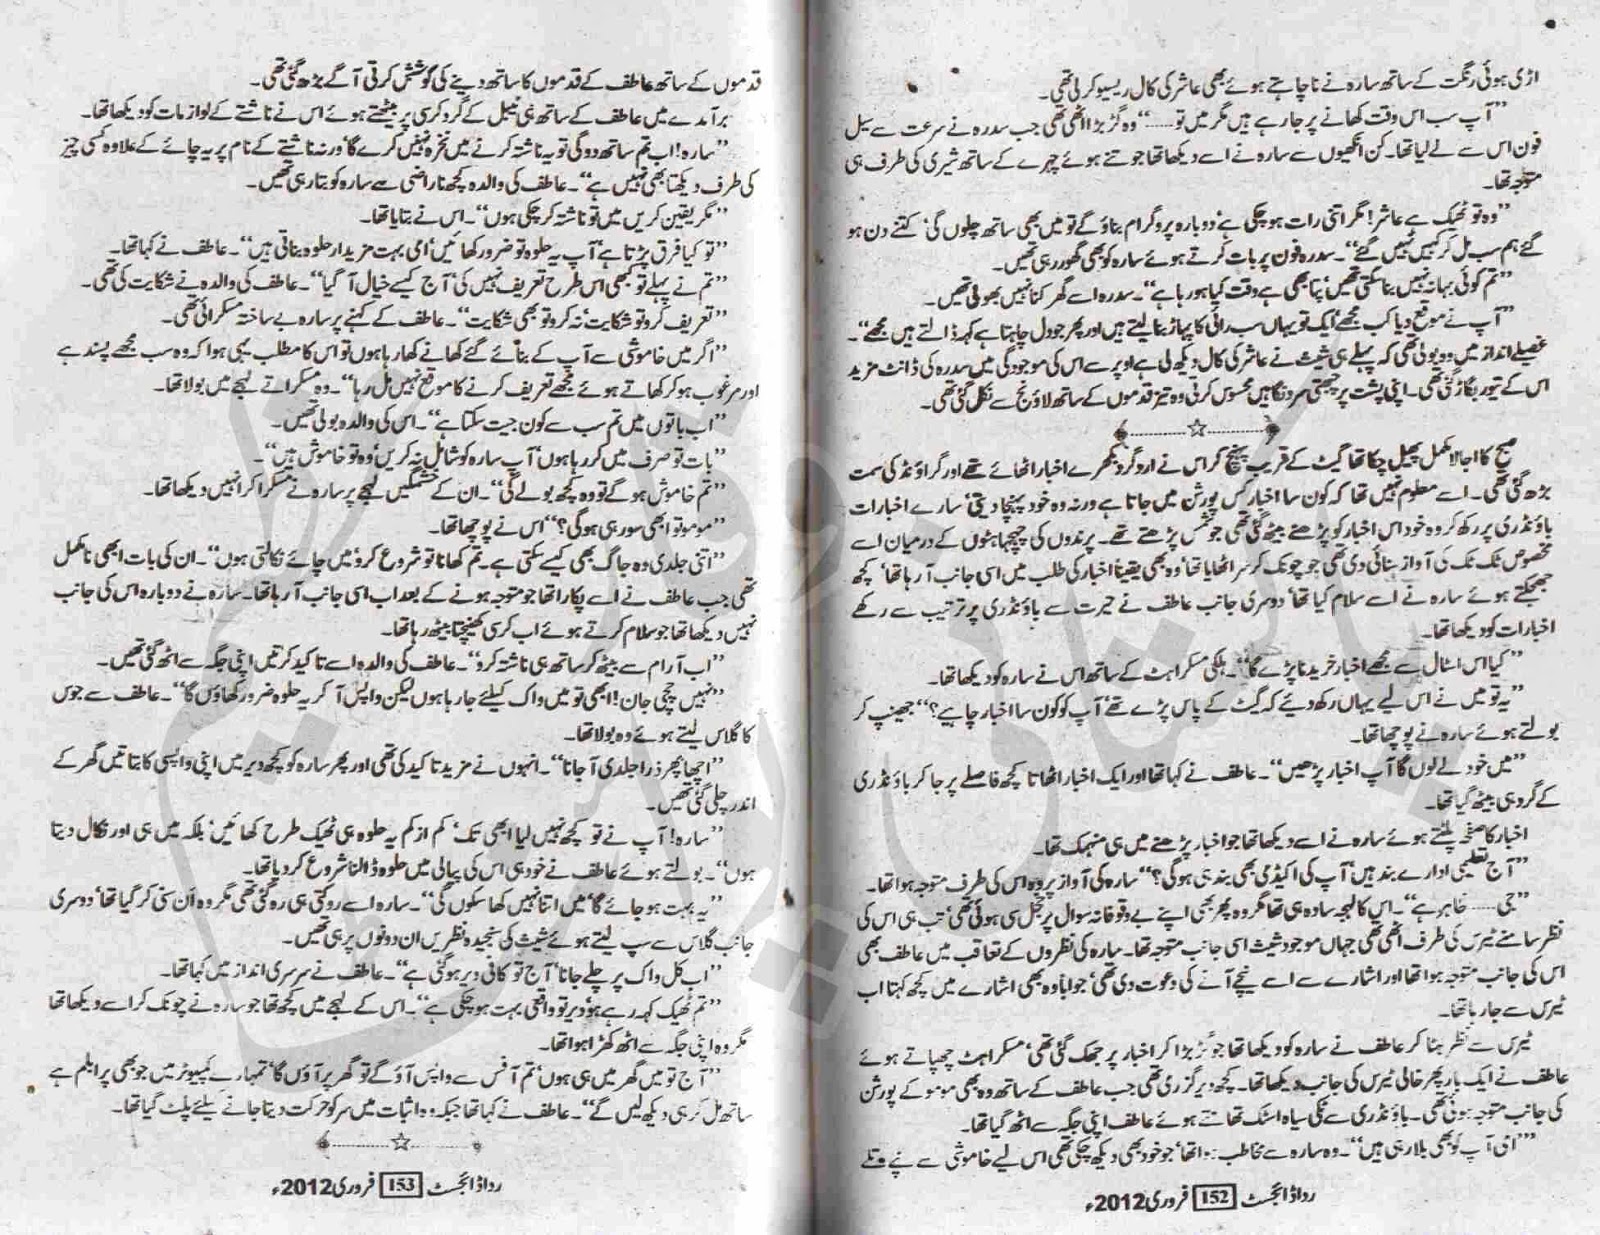 اڑی ہوئی رنگت کے ساتھ سارہ نے نا چاہتے ہوئے بھی عاشر کی کال ریسیو کر لی تھی۔
”آپ سب اس وقت کھانے پر جا رہے ہیں مگر میں تو......“ وہ گڑبڑا اٹھی تھی جب سدرہ نے سرعت سے سیل
فون اس سے لے لیا تھا۔ کن انکھیوں سے سارہ نے اسے دیکھا تھا جو تنے ہوئے چہرے کے ساتھ شیری کی طرف ہی
متوجہ تھا۔
”وہ تو ٹھیک ہے عاشر! مگر اتنی رات ہو چکی ہے‘ دوبارہ پروگرام بناؤ گے تو میں بھی ساتھ چلوں گی‘ کتنے دن ہو
گئے ہم سب مل کر کہیں نہیں گئے“۔ سدرہ فون پر بات کرتے ہوئے سارہ کو بھی گھور رہی تھیں۔
”تم کوئی بہانہ نہیں بنا سکتی تھیں‘ پتا بھی ہے وقت کیا ہو رہا ہے“۔ سدرہ اسے گھرکنا نہیں بھولی تھیں۔
”آپ نے موقع دیا کب مجھے‘ ایک تو یہاں سب رائی کا پہاڑ بنا لیتے ہیں اور پھر جو دل چاہتا ہے کہہ ڈالتے ہیں مجھے“۔
غصیلے انداز میں وہ بولی تھی کہ پہلے ہی شیث نے عاشر کی کال دیکھ لی ہے اوپر سے اس کی موجودگی میں سدرہ کی ڈانٹ مزید
اس کے تیور بگاڑ گئی تھی۔ اپنی پشت پر چبھتی سرد نگاہیں محسوس کرتی وہ تیز قدموں کے ساتھ لاؤنج سے نکل گئی تھی۔
صبح کا اجالا مکمل پھیل چکا تھا گیٹ کے قریب پہنچ کر اس نے اردگرد بکھرے اخبار اٹھائے تھے اور گراؤنڈ کی سمت
بڑھ گئی تھی۔ اسے معلوم نہیں تھا کہ کون سا اخبار کس پورشن میں جاتا ہے ورنہ وہ خود پہنچا دیتی‘ سارے اخبارات
باؤنڈری پر رکھ کر وہ خود اس اخبار کو پڑھنے بیٹھ گئی تھی جو شمس پڑھتے تھے۔ پرندوں کی چہچہاہٹوں کے درمیان اسے
مخصوص ٹک ٹک کی آواز سنائی دی تھی جو چونک کر سر اٹھایا تھا‘ وہ بھی یقیناً اخبار کی طلب میں اسی جانب آ رہا تھا‘ کچھ
جھجکتے ہوئے سارہ نے اسے سلام کیا تھا‘ دوسری جانب عاطف نے حیرت سے باؤنڈری پر ترتیب سے رکھے
اخبارات کو دیکھا تھا۔
”کیا اس اسٹال سے مجھے اخبار خریدنا پڑے گا“۔ ہلکی مسکراہٹ کے ساتھ اس نے سارہ کو دیکھا تھا۔
”یہ تو میں نے اس لیے یہاں رکھ دیئے کہ گیٹ کے پاس پڑے تھے‘ آپ کو کون سا اخبار چاہیے؟“ جھینپ کر
بولتے ہوئے سارہ نے پوچھا تھا۔
”میں خود لے لوں گا آپ اخبار پڑھیں“۔ عاطف نے کہا تھا اور ایک اخبار اٹھاتا کچھ فاصلے پر جا کر باؤنڈری
کے گرد ہی بیٹھ گیا تھا۔
اخبار کا صفحہ پلٹتے ہوئے سارہ نے اسے دیکھا تھا جو اخبار پڑھنے میں ہی منہمک تھا۔
”آج تعلیمی ادارے بند ہیں‘ آپ کی اکیڈمی بھی بند ہی ہو گی؟“ سارہ کی آواز پر وہ اس کی طرف متوجہ ہوا تھا۔
”جی...... ظاہر ہے“۔ اس کا لہجہ سادہ ہی تھا مگر وہ پھر بھی اپنے بے وقوفانہ سوال پر خجل سی ہوئی تھی‘ تب ہی اس کی
نظر سامنے ٹیرس کی طرف اٹھی تھی جہاں موجود شیث اسی جانب متوجہ تھا۔ سارہ کی نظروں کے تعاقب میں عاطف بھی
اس کی جانب متوجہ ہوا تھا اور اشارے سے اسے نیچے آنے کی دعوت دی تھی‘ جواباً وہ بھی اشارے میں کچھ کہتا اب
ٹیرس سے جا رہا تھا۔
ٹیرس سے نظر ہٹا کر عاطف نے سارہ کو دیکھا تھا جو گڑبڑا کر اخبار پر جھک گئی تھی‘ مسکراہٹ چھپاتے ہوئے
عاطف نے ایک بار پھر خالی ٹیرس کی جانب دیکھا تھا۔ کچھ دیر گزری تھی جب عاطف کے ساتھ وہ بھی مومو کے پورشن
کی جانب متوجہ ہوئی تھی۔ باؤنڈری سے ٹکی سیاہ اسٹک تھامتے ہوئے عاطف اپنی جگہ سے اٹھ گیا تھا۔
”امی آپ کو بھی بلا رہی ہیں“۔ وہ سارہ سے مخاطب ہوا تھا‘ جو خود بھی دیکھ چکی تھی اس لیے خاموشی سے نپے تلے
ردا ڈائجسٹ 152 فروری 2012ء
قدموں کے ساتھ عاطف کے قدموں کا ساتھ دینے کی کوشش کرتی آگے بڑھ گئی تھی۔
برآمدے میں عاطف کے ساتھ ہی ٹیبل کے گرد کرسی پر بیٹھتے ہوئے اس نے ناشتے کے لوازمات کو دیکھا تھا۔
”سارہ! اب تم ساتھ دو گی تو یہ ناشتہ کرنے میں نخرہ نہیں کرے گا‘ ورنہ ناشتے کے نام پر یہ چائے کے علاوہ کسی چیز
کی طرف دیکھتا بھی نہیں ہے“۔ عاطف کی والدہ کچھ ناراضی سے سارہ کو بتا رہی تھیں۔
”مگر یقین کریں میں تو ناشتہ کر چکی ہوں“۔ اس نے بتایا تھا۔
”تو کیا فرق پڑتا ہے‘ آپ یہ حلوہ تو ضرور کھائیں‘ امی بہت مزیدار حلوہ بناتی ہیں“۔ عاطف نے کہا تھا۔
”تم نے پہلے تو کبھی اس طرح تعریف نہیں کی‘ آج کیسے خیال آ گیا“۔ عاطف کی والدہ نے شکایت کی تھی۔
”تعریف کرو تو شکایت‘ نہ کرو تو بھی شکایت“۔ عاطف کے کہنے پر سارہ بے ساختہ مسکرائی تھی۔
”اگر میں خاموشی سے آپ کے بنائے گئے کھانے کھا رہا ہوں تو اس کا مطلب یہی ہوا کہ وہ سب مجھے پسند ہے
اور مرغوب ہو کر کھاتے ہوئے مجھے تعریف کرنے کا موقع نہیں مل رہا“۔ وہ مسکراتے لہجے میں بولا تھا۔
”اب باتوں میں تم سب سے کون جیت سکتا ہے“۔ اس کی والدہ بولی تھیں۔
”بات تو صرف میں کر رہا ہوں‘ آپ سارہ کو شامل نہ کریں‘ وہ تو خاموش ہیں“۔
”تم خاموش ہو گے تو وہ کچھ بولے گی“۔ ان کے خشمگیں لہجے پر سارہ نے مسکرا کر انہیں دیکھا تھا۔
”مومو تو ابھی سو رہی ہو گی؟“ اس نے پوچھا تھا۔
”اتنی جلدی وہ جاگ بھی کیسے سکتی ہے۔ تم کھانا تو شروع کرو‘ میں چائے نکالتی ہوں“۔ ان کی بات ابھی نامکمل
تھی جب عاطف نے اسے پکارا تھا جو متوجہ ہونے کے بعد اب اسی جانب آ رہا تھا۔ سارہ نے دوبارہ اس کی جانب
نہیں دیکھا تھا جو سلام کرتے ہوئے اب کرسی کھینچتا بیٹھ رہا تھا۔
”اب آرام سے بیٹھ کر ساتھ ہی ناشتہ کرو“۔ عاطف کی والدہ اسے تاکید کرتیں اپنی جگہ سے اٹھ گئی تھیں۔
”نہیں چچی جان! ابھی تو میں واک کیلئے جا رہا ہوں لیکن واپس آ کر یہ حلوہ ضرور کھاؤں گا“۔ عاطف سے جوس
کا گلاس لیتے ہوئے وہ بولا تھا۔
”اچھا پھر ذرا جلدی آ جانا“۔ انہوں نے مزید تاکید کی تھی اور پھر سارہ کو کچھ دیر میں اپنی واپسی کا بتاتیں گھر کے
اندر چلی گئی تھیں۔
”سارہ! آپ نے تو کچھ نہیں لیا ابھی تک‘ کم از کم یہ حلوہ ہی ٹھیک طرح کھائیں‘ بلکہ میں ہی اور نکال دیتا
ہوں“۔ بولتے ہوئے عاطف نے خود ہی اس کی پیالی میں حلوہ ڈالنا شروع کر دیا تھا۔
”یہ بہت ہو جائے گا‘ میں اتنا نہیں کھا سکوں گی“۔ سارہ اسے روکتی ہی رہ گئی تھی مگر وہ اَن سنی کر گیا تھا‘ دوسری
جانب گلاس سے سپ لیتے ہوئے شیث کی سنجیدہ نظریں ان دونوں پر ہی تھیں۔
”اب کل واک پر چلے جانا‘ آج تو کافی دیر ہو گئی ہے“۔ عاطف نے سرسری انداز میں کہا تھا۔
”تم ٹھیک کہہ رہے ہو‘ دیر تو واقعی بہت ہو چکی ہے“۔ اس کے لہجے میں کچھ تھا جو سارہ نے چونک کر اسے دیکھا تھا
مگر وہ اپنی جگہ سے اٹھ کھڑا ہوا تھا۔
”آج تو میں گھر میں ہی ہوں‘ تم آفس سے واپس آؤ گے تو گھر پر آؤں گا‘ تمہارے کمپیوٹر میں جو بھی پرابلم ہے
ساتھ مل کر ہی دیکھ لیں گے“۔ عاطف نے کہا تھا جبکہ وہ اثبات میں سر کو حرکت دیتا جانے کیلئے پلٹ گیا تھا۔
ردا ڈائجسٹ 153 فروری 2012ء